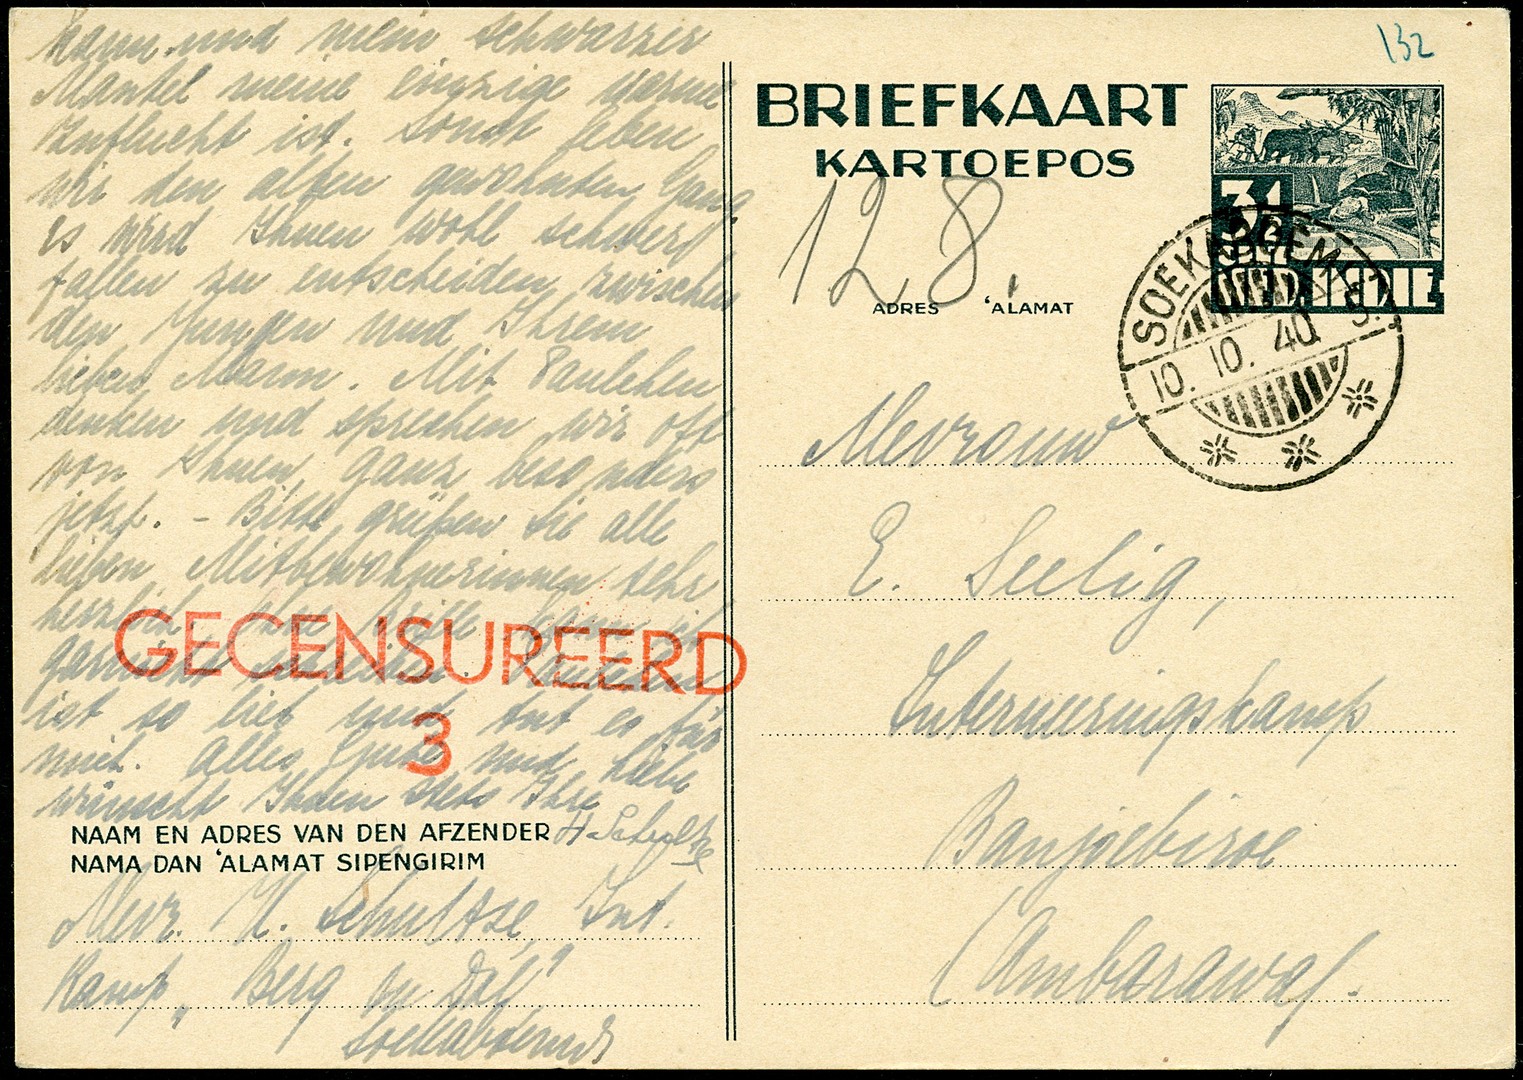 kann und mein schwarzer
Mantel meine einzige warme
Zuflucht ist. Sonst geben
wir den alten gewohnten Gang
es wird Ihnen wohl schwer
fallen zu entscheiden zwischen
den Jungen und Ihrem
lieben Mann. Mit Paulchen
denken und sprechen wir oft
von Ihnen, ganz besonders
jetzt. – Bitte grüßen Sie alle
lieben Mitbewohnerinnen sehr
herzlich
gar nicht
ist so lieb und tut es für
mich. Alles Gute und Liebe
wünscht Ihnen stets Ihre
H. Schultze
GECENSUREERD
3
NAAM EN ADRES VAN DEN AFZENDER
NAMA DAN 'ALAMAT SIPENGIRIM
Mevr. H. Schultze, Int.
Kamp „Berg en Dal"
Soekaboemi
132
BRIEFKAART
KARTOEPOS
128.
3½
CENT
NED. INDIE
SOEKABOEMI
10.10.40 9.
ADRES 'ALAMAT
Mevrouw
E. Seelig,
Interneeringskamp
Banjoebiroe
(Ambarawa).